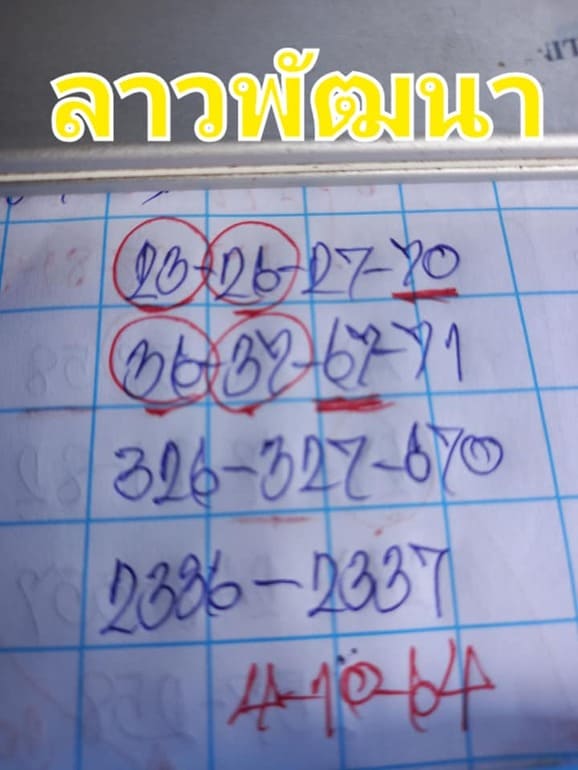 ลาวพัฒนา
23-26-27-70
36-37-67-71
326-327-670
2336-2337
4-10-64